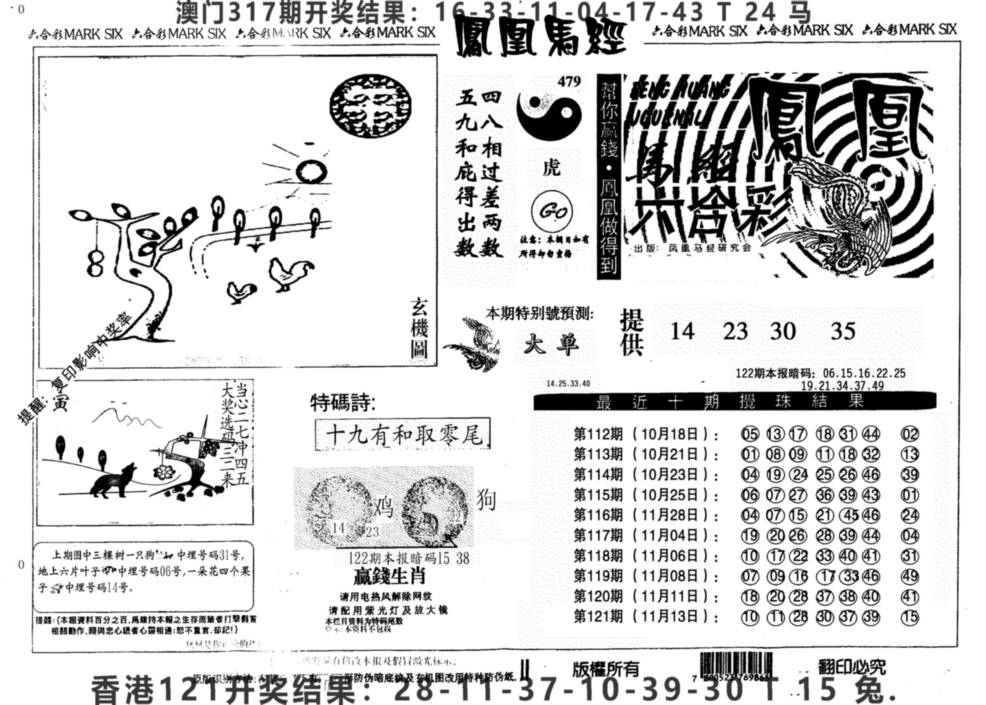 澳门317期开奖结果：16-33-11-04-17-43 T 24 马
六合彩MARK SIX 六合彩MARK SIX 六合彩MARK SIX 六合彩MARK SIX
鳳凰馬經
六合彩MARK SIX 六合彩MARK SIX 六合彩MARK SIX
玄機圖
四八相过差两数
五九和庇得出数
479
虎
Go
注意：本期日如有
所得却勿重播
幫你贏錢·鳳凰做得到
FENG HUANG
JOURNAL
鳳凰
馬經
六合彩
出版：凤凰马经研究会
本期特别號預測:
大单
提供
14 23 30 35
122期本报暗码：06.15.16.22.25
19.21.34.37.49
14.25.33.40
最近十期攪珠結果
第112期（10月18日）： 05 13 17 18 31 44 02
第113期（10月21日）： 01 08 09 11 18 32 13
第114期（10月23日）： 04 19 24 25 26 46 39
第115期（10月25日）： 06 07 27 36 39 43 01
第116期（11月28日）： 04 07 15 21 45 46 24
第117期（11月04日）： 19 20 26 28 39 44 04
第118期（11月06日）： 10 17 22 33 40 41 31
第119期（11月08日）： 07 09 16 17 33 46 49
第120期（11月11日）： 18 20 28 37 38 40 41
第121期（11月13日）： 10 11 28 30 37 39 15
提醒：复印影响中奖率
寅
当心二七冲四五
大奖选码三二来
特碼詩:
十九有和取零尾
鸡
狗
14
23
122期本报暗码15 38
赢錢生肖
请用电热风解除网纹
请配用紫光灯及放大镜
本栏目资料为特码尾数
上期图中三棵树一只狗中埋号码31号,
地上六片叶子中埋号码06号,一朵花四个果
子中埋号码14号。
提醒:(本報資料百分之百,爲維持本報之生存而筆者打擊假冒
相關動作,願與忠心讀者心靈相通:恕不重言,却記!)
版權所有
翻印必究
香港121开奖结果：28-11-37-10-39-30 T 15 兔.